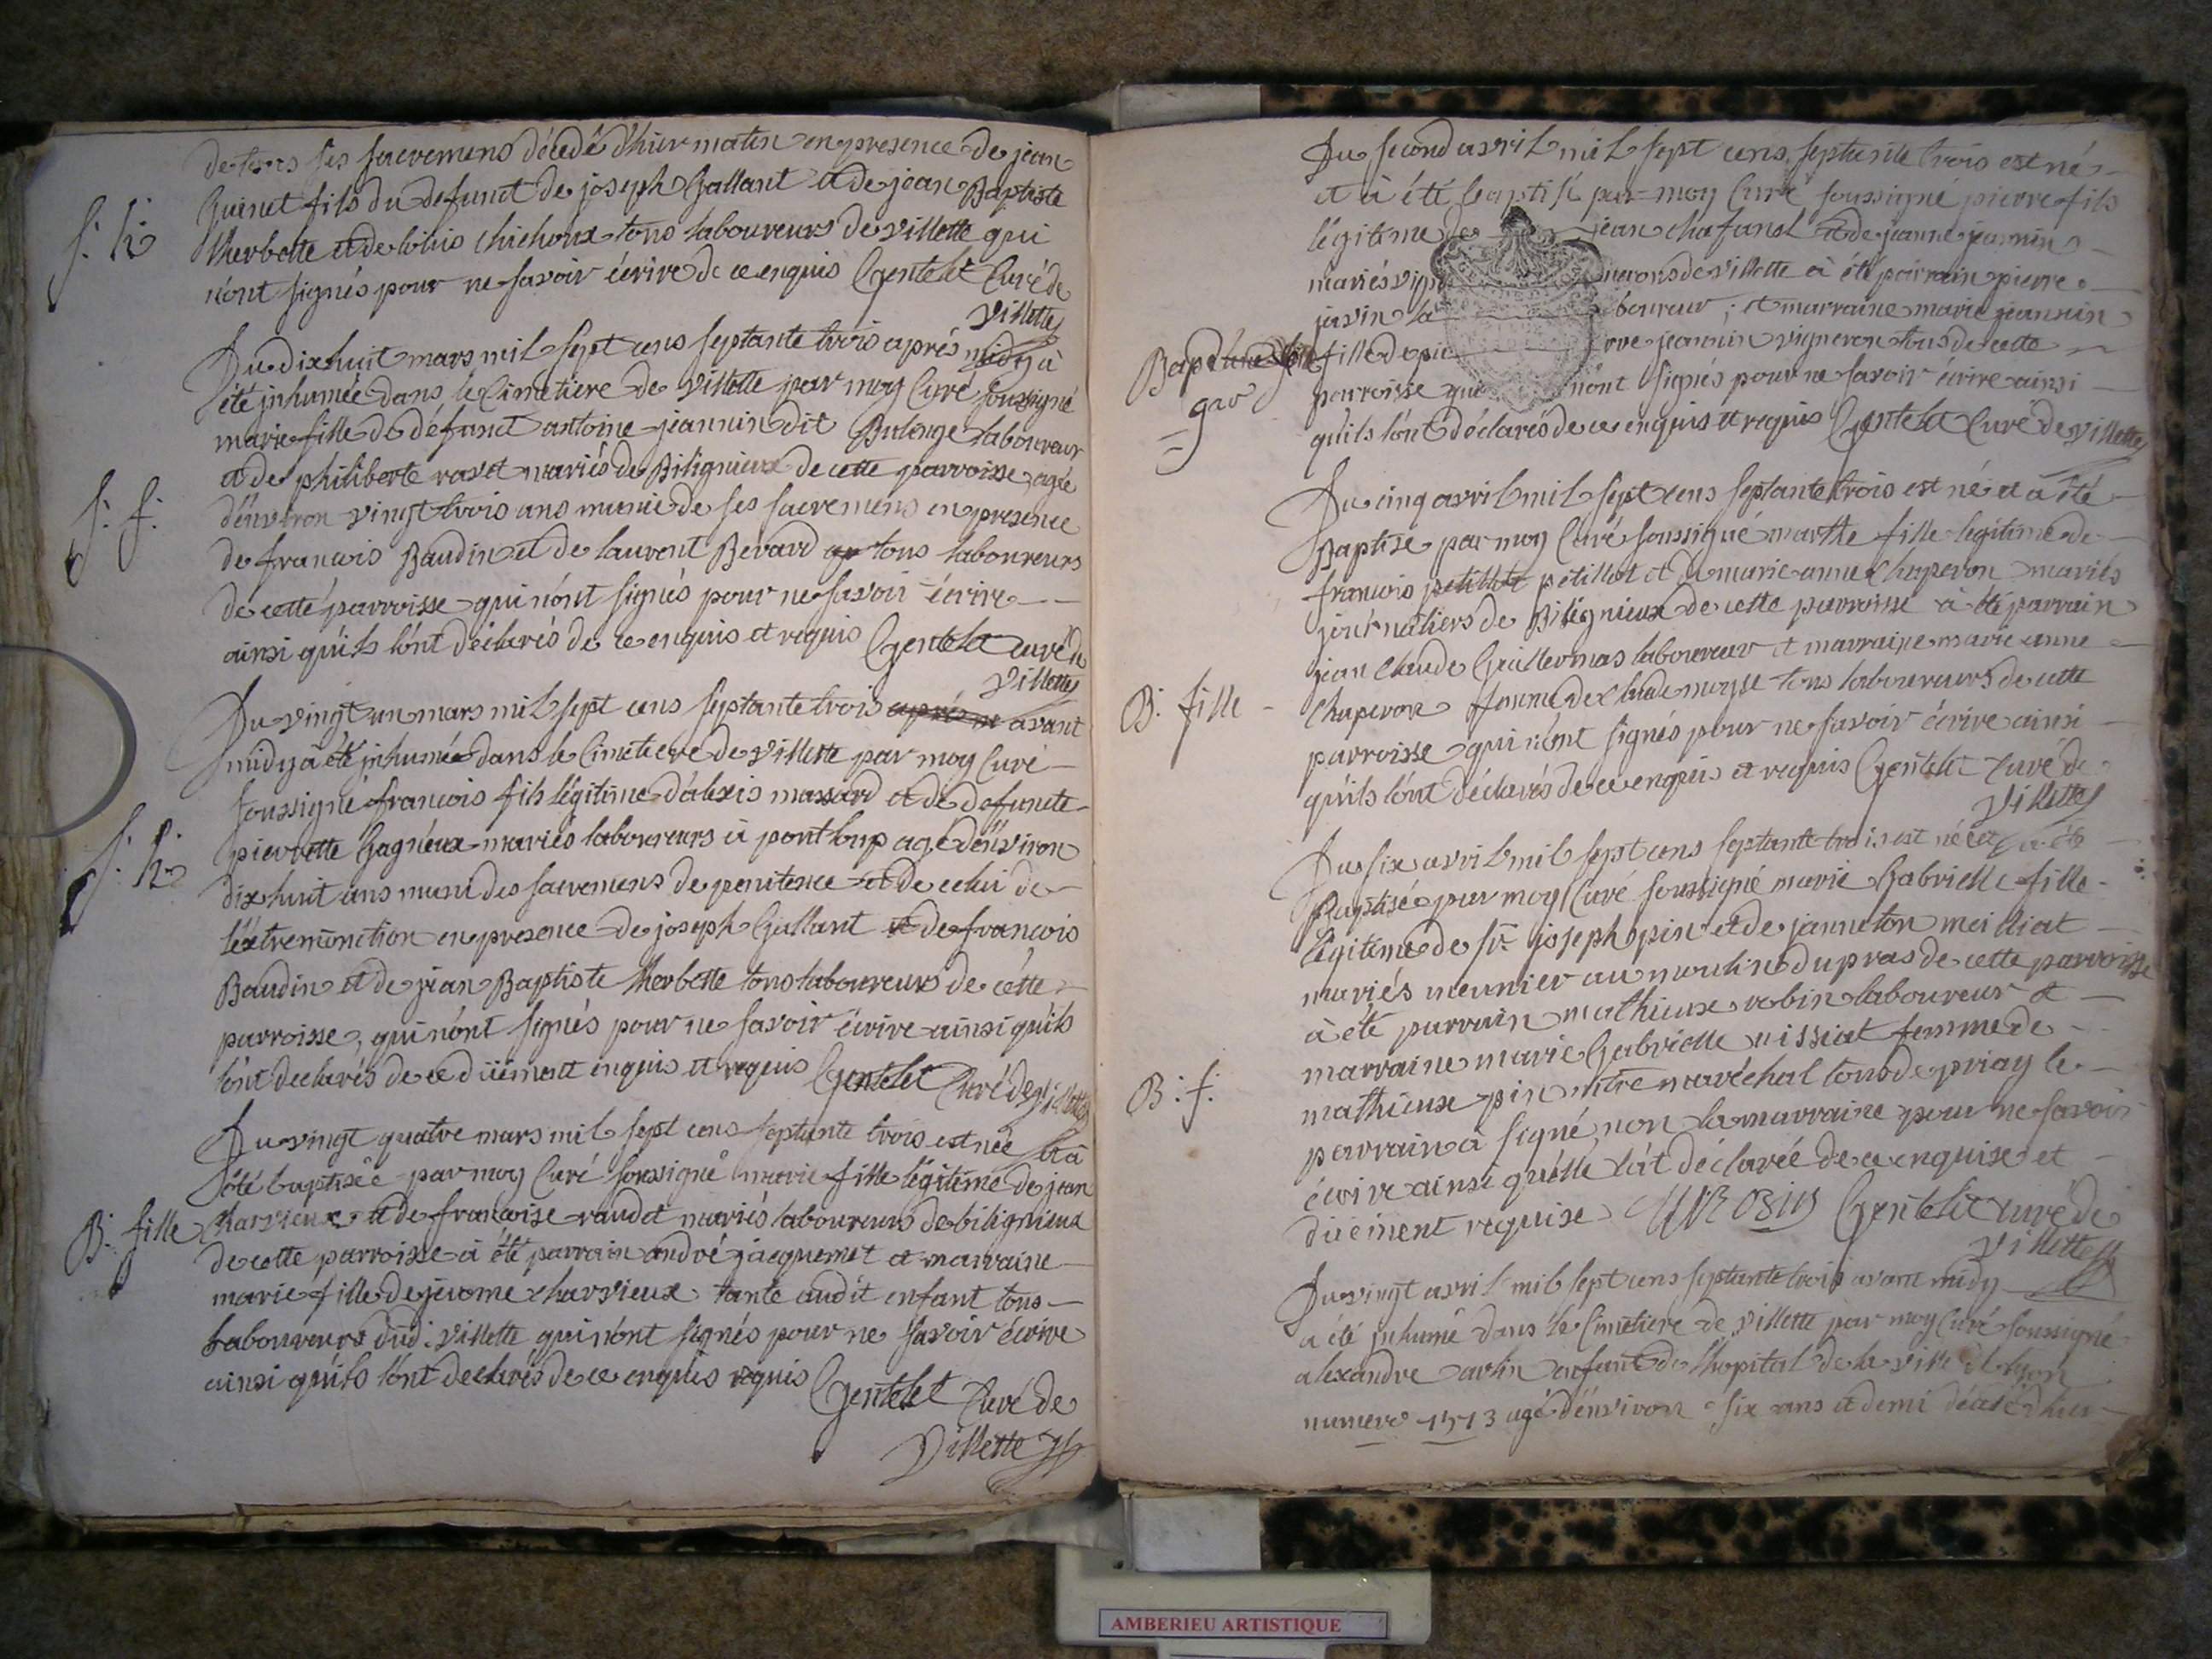 de tous ses sacremens décedé d'hier matin en presence de jean
quinet fils du defunct de joseph Gallant et de jean Baptiste
Therbette et de loüis Chichoux tous laboureurs de villette qui
n'ont signés pour ne savoir écrire de ce enquis Gentelet Curé de
villette
S. h.
Du dixhuit mars mil sept cens septante trois aprés midy à
été inhumée dans le Cimetiere de villette par moy Curé soussigné
marie fille de défunct antoine jeannin dit Bulonge laboureur
et de philiberte ravet mariés de Bilignieux de cette parroisse agée
d'environ vingt trois ans munie de ses sacremens en presence
de francois Baudin et de laurent Berard tous laboureurs
de cette parroisse qui n'ont signés pour ne savoir écrire
ainsi qu'ils l'ont déclarés de ce enquis et requis Gentelet curé de
villette
S. f.
Du vingt un mars mil sept cens septante trois aprés m avant
midy à été inhumée dans le Cimetiere de villette par moy Curé
soussigné francois fils légitime d'alexis massard et de defuncte
pierrette Gagneux mariés laboureurs à pont loup agé d'environ
dix huit ans muni des sacremens de penitence et de celui de
l'extremonction en presence de joseph Gallant et de francois
Baudin et de jean Baptiste Therbette tous laboureurs de cette
parroisse, qui n'ont signés pour ne savoir écrire ainsi qu'ils
l'ont declarés de ce düement enquis et requis Gentelet Curé de villette
S. h.
Du vingt quatre mars mil sept cens septante trois est née et à
été baptisée par moy Curé soussigné marie fille légitime de jean
B. fille Charvieux et de francoise raudet mariés laboureurs de bilignieux
de cette parroisse à été parrain andré jacquemet et marraine
marie fille de jerome charvieux tante audit enfant tous
laboureurs dud. villette qui n'ont signés pour ne savoir écrire
ainsi qu'ils l'ont declarés de ce enquis requis Gentelet Curé de
Villette
Du second avril mil sept cens septante trois est né
et à été baptisé par moy Curé soussigné pierre fils
légitime de jean chafanel et de jeanne jeannin
mariés vignerons de villette à été parrain pierre
javin laboureur ; et marraine marie jeannin
fille de pierre jeannin vigneron tous de cette
parroisse qui n'ont signés pour ne savoir écrire ainsi
qu'ils l'ont déclarés de ce enquis et requis Gentelet Curé de villette
Du cinq avril mil sept cens septante trois est né et à été
Baptise par moy Curé soussigné marthe fille legitime de
francois petillot et de marie anne Chaperon mariés
journaliers de Bilignieux de cette parroisse à été parrain
jean Claude Guillermas laboureur et marraine marie anne
B. fille Chaperon femme de Claude moyse tous laboureurs de cette
parroisse qui n'ont signés pour ne savoir écrire ainsi
qu'ils l'ont déclarés de ce enquis et requis Gentelet Curé de
Villette
Du six avril mil sept cens septante trois est née et à été
Baptisée par moy Curé soussigné marie Gabrielle fille
légitime de sr. joseph pin et de janneton meilliat
mariés meunier au moulin du pras de cette parroisse
à été parrain mathieux robin laboureur et
B. f. marraine marie Gabrielle nissiat femme de
mathieux pin mtre maréchal tous de priay le
parrain à signé, non la marraine pour ne savoir
écrire ainsi qu'elle l'at déclarée de ce enquise et
düement requise M ROBIN Gentelet curé de
Villette
Du vingt avril mil sept cens septante trois avant midy
a été inhumé dans le Cimetiere de villette par moy Curé soussigné
alexandre enfant de l'hopital de la ville de lyon
numero 1513 agé d'environ six ans et demi décédé d'hier
AMBERIEU ARTISTIQUE